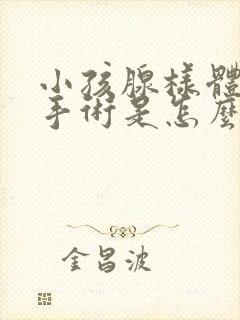 小孩腺樣體
手術是怎麼
金昌波